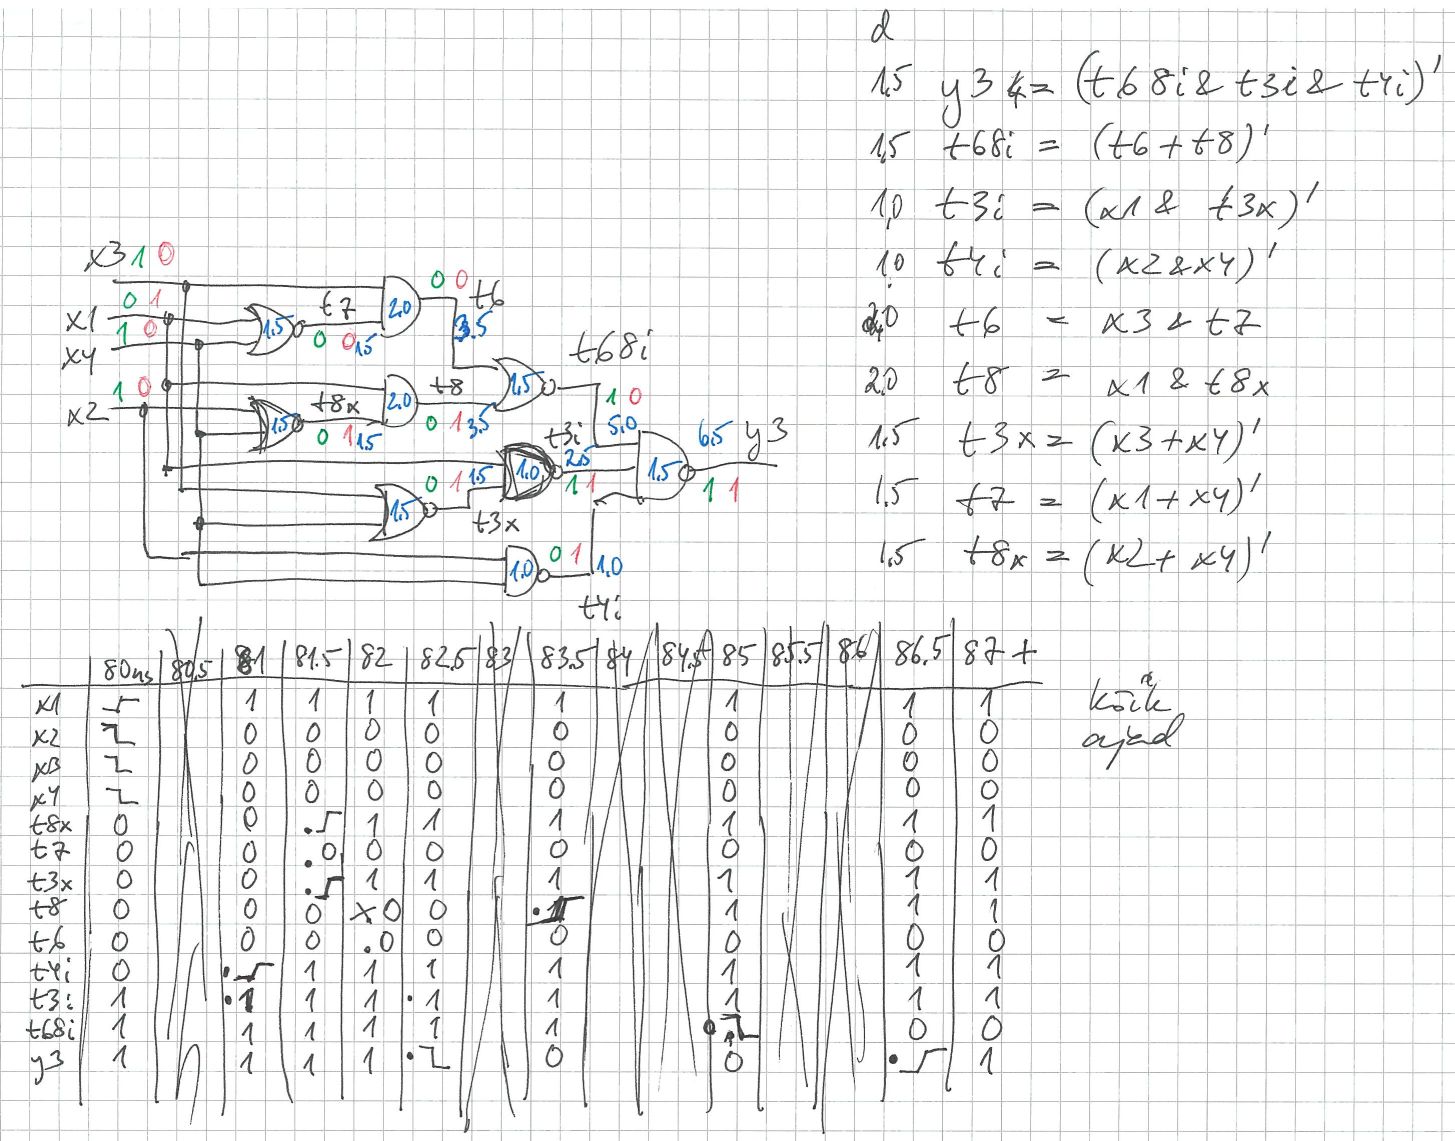 d
1,5 y3 <= (t68i & t3i & t4i)'
1,5 t68i = (t6 + t8)'
1,0 t3i = (x1 & t3x)'
1,0 t4i = (x2 & x4)'
2,0 t6 = x3 & t7
2,0 t8 = x1 & t8x
1.5 t3x = (x3 + x4)'
1.5 t7 = (x1 + x4)'
1.5 t8x = (x2 + x4)'
x3 1 0
0 1
x1
1 0
x4
1 0
x2
1.5
t7
0 0 1.5
2.0
0 0
t6
3.5
1.5
t8x
0 1 1.5
2.0
t8
0 1 3.5
1.5
t68i
1 0
5.0
1.5
0 1 1.5
t3x
1.0
t3i
2.5
1 1
1.0
0 1
1.0
t4i
1.5
6.5 y3
1 1
80ns 80.5 81 81.5 82 82.5 83 83.5 84 84.5 85 85.5 86 86.5 87 +
x1 1 1 1 1 1 1 1 1
x2 0 0 0 0 0 0 0 0
x3 0 0 0 0 0 0 0 0
x4 0 0 0 0 0 0 0 0
t8x 0 0 . 1 1 1 1 1 1
t7 0 0 . 0 0 0 0 0 0 0
t3x 0 0 . 1 1 1 1 1 1
t8 0 0 0 x 0 0 . 1 1 1 1
t6 0 0 0 . 0 0 0 0 0 0
t4i 0 . 1 1 1 1 1 1 1
t3i 1 . 1 1 1 . 1 1 1 1 1
t68i 1 1 1 1 1 1 0 0
y3 1 1 1 1 . 0 0 . 1
kõik
ajad